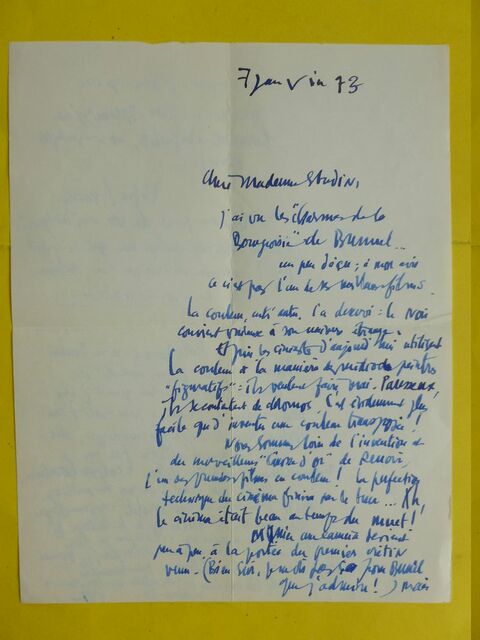 7 janvier 73
Chère Madame
j'ai vu les "Charmes de la
Bourgeoisie" de Bunuel...
un peu déçu ; à mon avis
ce n'est pas l'un de ses meilleurs films.
La couleur, entre autre, l'a desservi : le Noir
convient mieux à son univers étrange.
Et puis les cinéastes d'aujourd'hui utilisent
la couleur à la manière des peintres
"figuratifs" : ils veulent faire vrai. Paresseux,
ils se contentent de chromos. C'est évidemment plus
facile que d'inventer une couleur transposée !
Nous sommes loin de l'invention et
du merveilleux "Carrosse d'or" de Renoir,
l'un des premiers films en couleur ! La perfection
technique du cinéma finira par le tuer... Ah,
le cinéma était beau au temps du muet !
une caméra devient
peu à peu à la portée du premier crétin
venu. (Bien sûr, je ne dis pas ça pour Bunuel
que j'admire !) mais